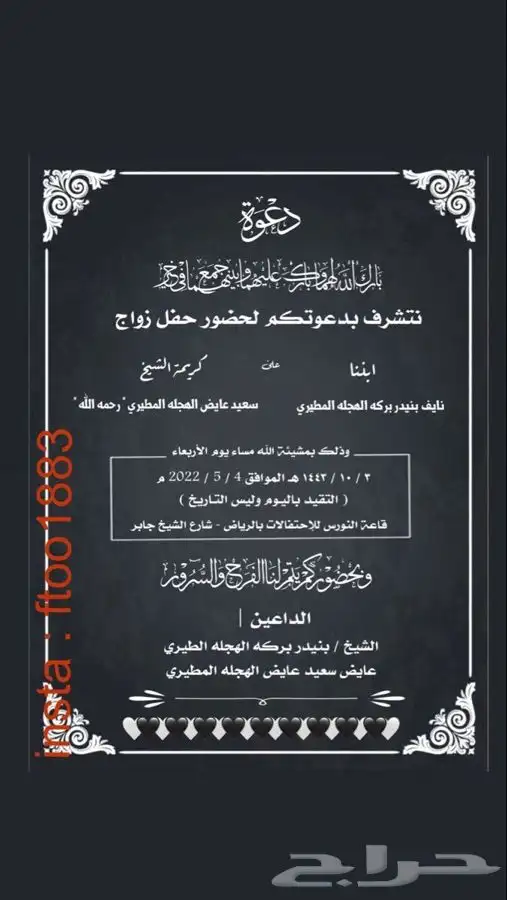 دعوة
بارك الله لهما وبارك عليهما وجمع بينهما في خير
نتشرف بدعوتكم لحضور حفل زواج
ابننا على كريمة الشيخ
نايف بنيدر بركه الهجله المطيري سعيد عايض الهجله المطيري "رحمه الله"
وذلك بمشيئة الله مساء يوم الأربعاء
٣ / ١٠ / ١٤٤٣ هـ الموافق 4 / 5 / 2022 م
( التقيد باليوم وليس التاريخ )
قاعة النورس للإحتفالات بالرياض - شارع الشيخ جابر
وبحضوركم يتم لنا الفرح والسرور
الداعين |
الشيخ / بنيدر بركه الهجله الطيري
عايض سعيد عايض الهجله المطيري
insta : ftoo1883
حراج